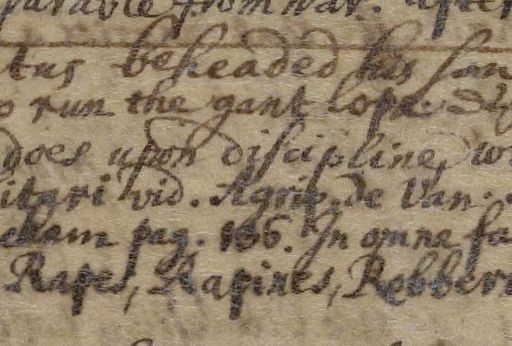 parable from war. after
tus beheaded his son
o run the gant lope.
does upon discipline, wo
itari vid. Agrip. de Van.
ekam pag. 186. In omne fa
Rapes, Rapines, Robber